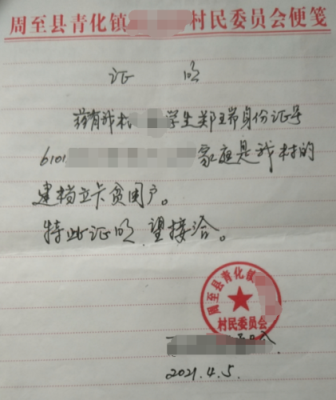 周至县青化镇 村民委员会便笺
证 明
兹有我村 学生郑 身份证号
6101 家庭是我村的
建档立卡贫困户。
特此证明,望接洽。
周至县青化镇
村民委员会
2021.4.5.